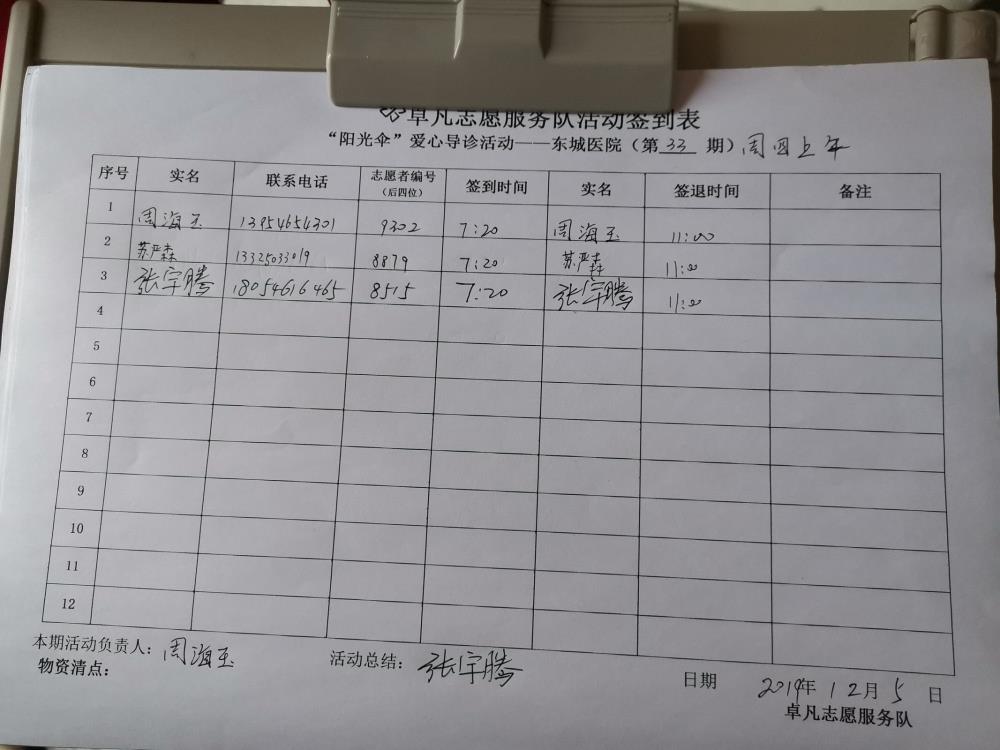 卓凡志愿服务队活动签到表
“阳光伞”爱心导诊活动——东城医院（第 33 期）周四上午
序号 实名 联系电话 志愿者编号（后四位） 签到时间 实名 签退时间 备注
1 周海玉 13954654301 9302 7:20 周海玉 11:00
2 苏严森 13325033019 8879 7:20 苏严森 11:00
3 张宇腾 18054616465 8515 7:20 张宇腾 11:00
4
5
6
7
8
9
10
11
12
本期活动负责人：周海玉 活动总结：张宇腾 日期 2019年12月5日
物资清点： 卓凡志愿服务队